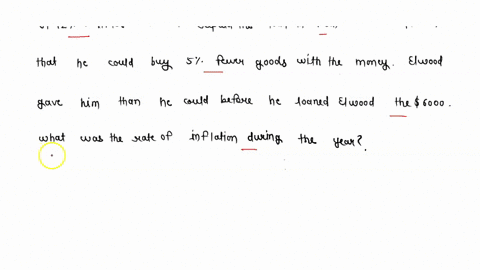 that he could buy 5% fewer goods with the money. Elwood
gave him than he could before he loaned Elwood the $6000.
what was the rate of inflation during the year?